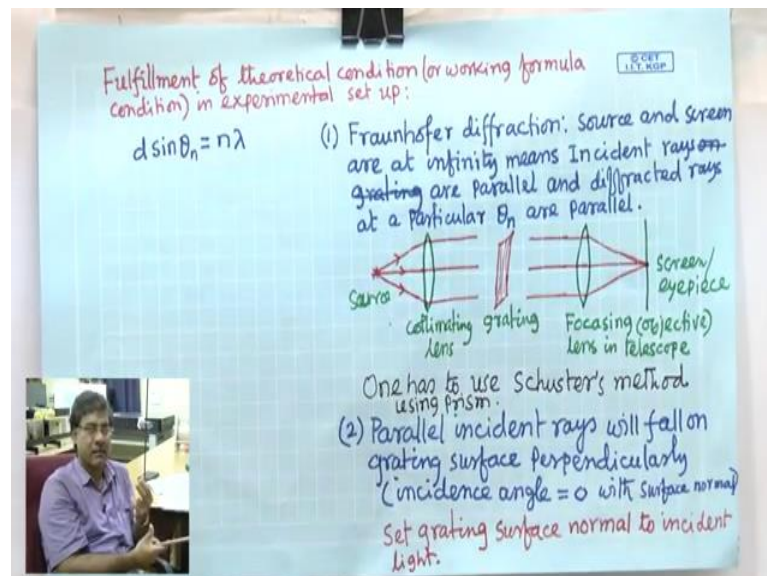 Fulfillment of theoretical condition (or working formula
condition) in experimental set up:
© CET
I.I.T. KGP
d sinθₙ = nλ
(1) Fraunhofer diffraction: Source and screen
are at infinity means Incident rays on
grating are parallel and diffracted rays
at a particular θₙ are parallel.
Source
collimating
lens
grating
Focasing (objective)
lens in telescope
screen/
eyepiece
One has to use Schuster's method
using prism.
(2) Parallel incident rays will fall on
grating surface perpendicularly
(incidence angle = 0 with surface normal)
Set grating surface normal to incident
light.